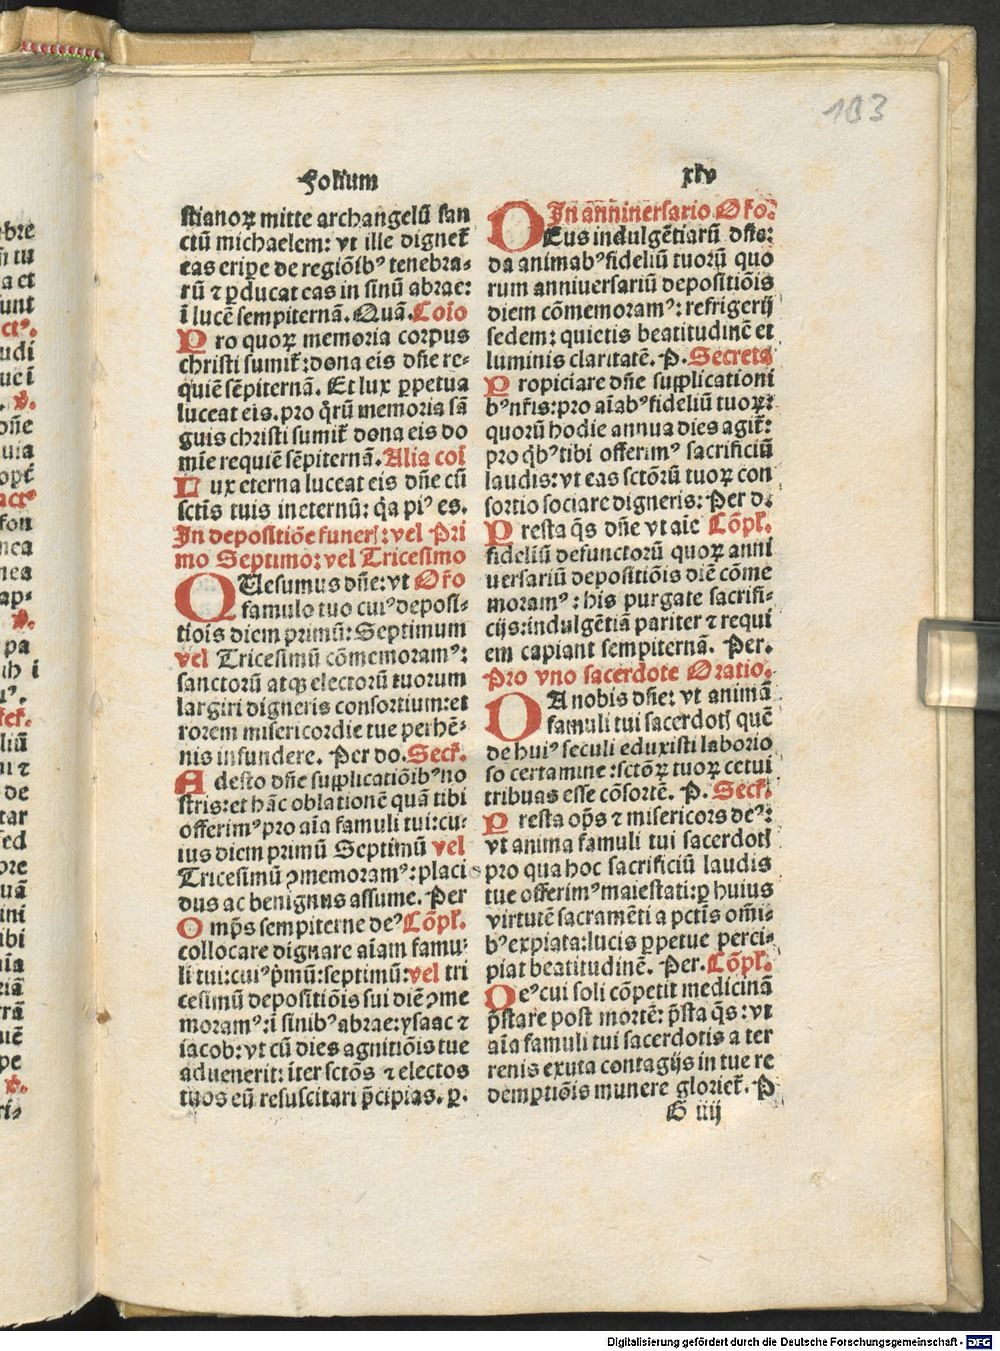 103
Folium xlv
stianoꝝ mitte archangelū san
ctū michaelem: vt ille digneť
eas eripe de regiōibꝰ tenebra⸗
rū ⁊ ꝓducat eas in sinū abrae:
ī lucē sempiternā. Quā. Coīo
Pro quoꝝ memoria corpus
christi sumiť: dona eis dñe re⸗
quiē sēpiternā. Et lux ꝑpetua
luceat eis. pro q̄rū memoria sā
guis christi sumiť dona eis do
mīe requiē sēpiternā. Alia coī
Lux eterna luceat eis dñe cū
sctīs tuis in eternū: q̄a piꝰ es.
In depositiōe funerꝭ: vel Pri
mo Septimo: vel Tricesimo
QUesumus dñe: vt Oŕo
famulo tuo cuiꝰ deposi⸗
tiois diem primū: Septimum
vel Tricesimū cōmemoramꝰ:
sanctorū atqꝫ electorū tuorum
largiri digneris consortium: et
rorem misericordie tue perhē⸗
nis infundere. Per do. Secŕ.
Adesto dñe supplicatiōibꝰ no
stris: et hāc oblationē quā tibi
offerimꝰ pro aīa famuli tui: cu⸗
ius diem primū Septimū vel
Tricesimū ꝯmemoramꝰ: placi
dus ac benignus assume. Per
Omp̄s sempiterne deꝰ Cōpł.
collocare dignare aīam famu⸗
li tui: cuiꝰ p̄mū: septimū: vel tri
cesimū depositiōis sui diē ꝯme
moramꝰ: ī sinibꝰ abrae: ysaac ⁊
iacob: vt cū dies agnitiōis tue
aduenerit: īter sctōs ⁊ electos
tuos eū resuscitari p̄cipias. ꝑ.
In anniuersario Oŕo.
DEus indulgētiarū dñs:
da animabꝰ fideliū tuorū quo
rum anniuersariū depositiōis
diem cōmemoramꝰ: refrigerij
sedem: quietis beatitudinē et
luminis claritatē. P. Secreta
Propiciare dñe supplicationi
bꝰ nŕis: pro aīabꝰ fideliū tuoꝝ:
quorū hodie annua dies agiť:
pro q̄bꝰ tibi offerimꝰ sacrificiū
laudis: vt eas sctōrū tuoꝝ con
sortio sociare digneris: Per d.
Presta q̄s dñe vt aīe Cōpł.
fideliū defunctorū quoꝝ anni
uersariū depositiōis diē cōme
moramꝰ: his purgate sacrifi⸗
cijs: indulgētiā pariter ⁊ requi
em capiant sempiternā. Per.
Pro vno sacerdote Oratio.
DA nobis dñe: vt animā
famuli tui sacerdotꝭ quē
de huiꝰ seculi eduxisti laborio
so certamine: sctōꝝ tuoꝝ cetui
tribuas esse cōsortē. P. Secŕ.
Presta op̄s ⁊ misericors deꝰ:
vt anima famuli tui sacerdotꝭ
pro qua hoc sacrificiū laudis
tue offerimꝰ maiestati: ꝑ huius
virtutē sacramēti a pctīs om̄i⸗
bꝰ expiata: lucis ꝑpetue perci⸗
piat beatitudinē. Per. Cōpł.
Deꝰ cui soli cōpetit medicinā
p̄stare post mortē: p̄sta q̄s: vt
aīa famuli tui sacerdotis a ter
renis exuta contagijs in tue re
demptiōis munere glorieť. P
G iiij
Digitalisierung gefördert durch die Deutsche Forschungsgemeinschaft - DFG